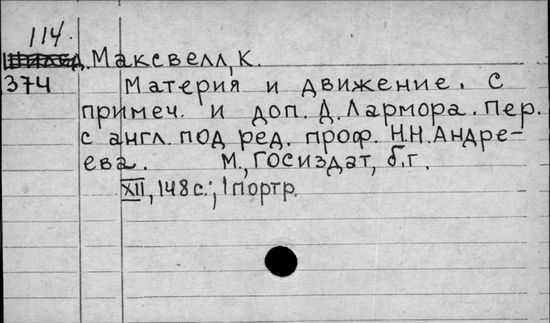 114.
Максвелл, К.
374 Материя и движение. С
примеч. и доп. Д. Лармора. Пер.
с англ. под ред. проф. Н.Н. Андре-
ева. М., Госиздат, б.г.
XII, 148 с.; 1 портр.